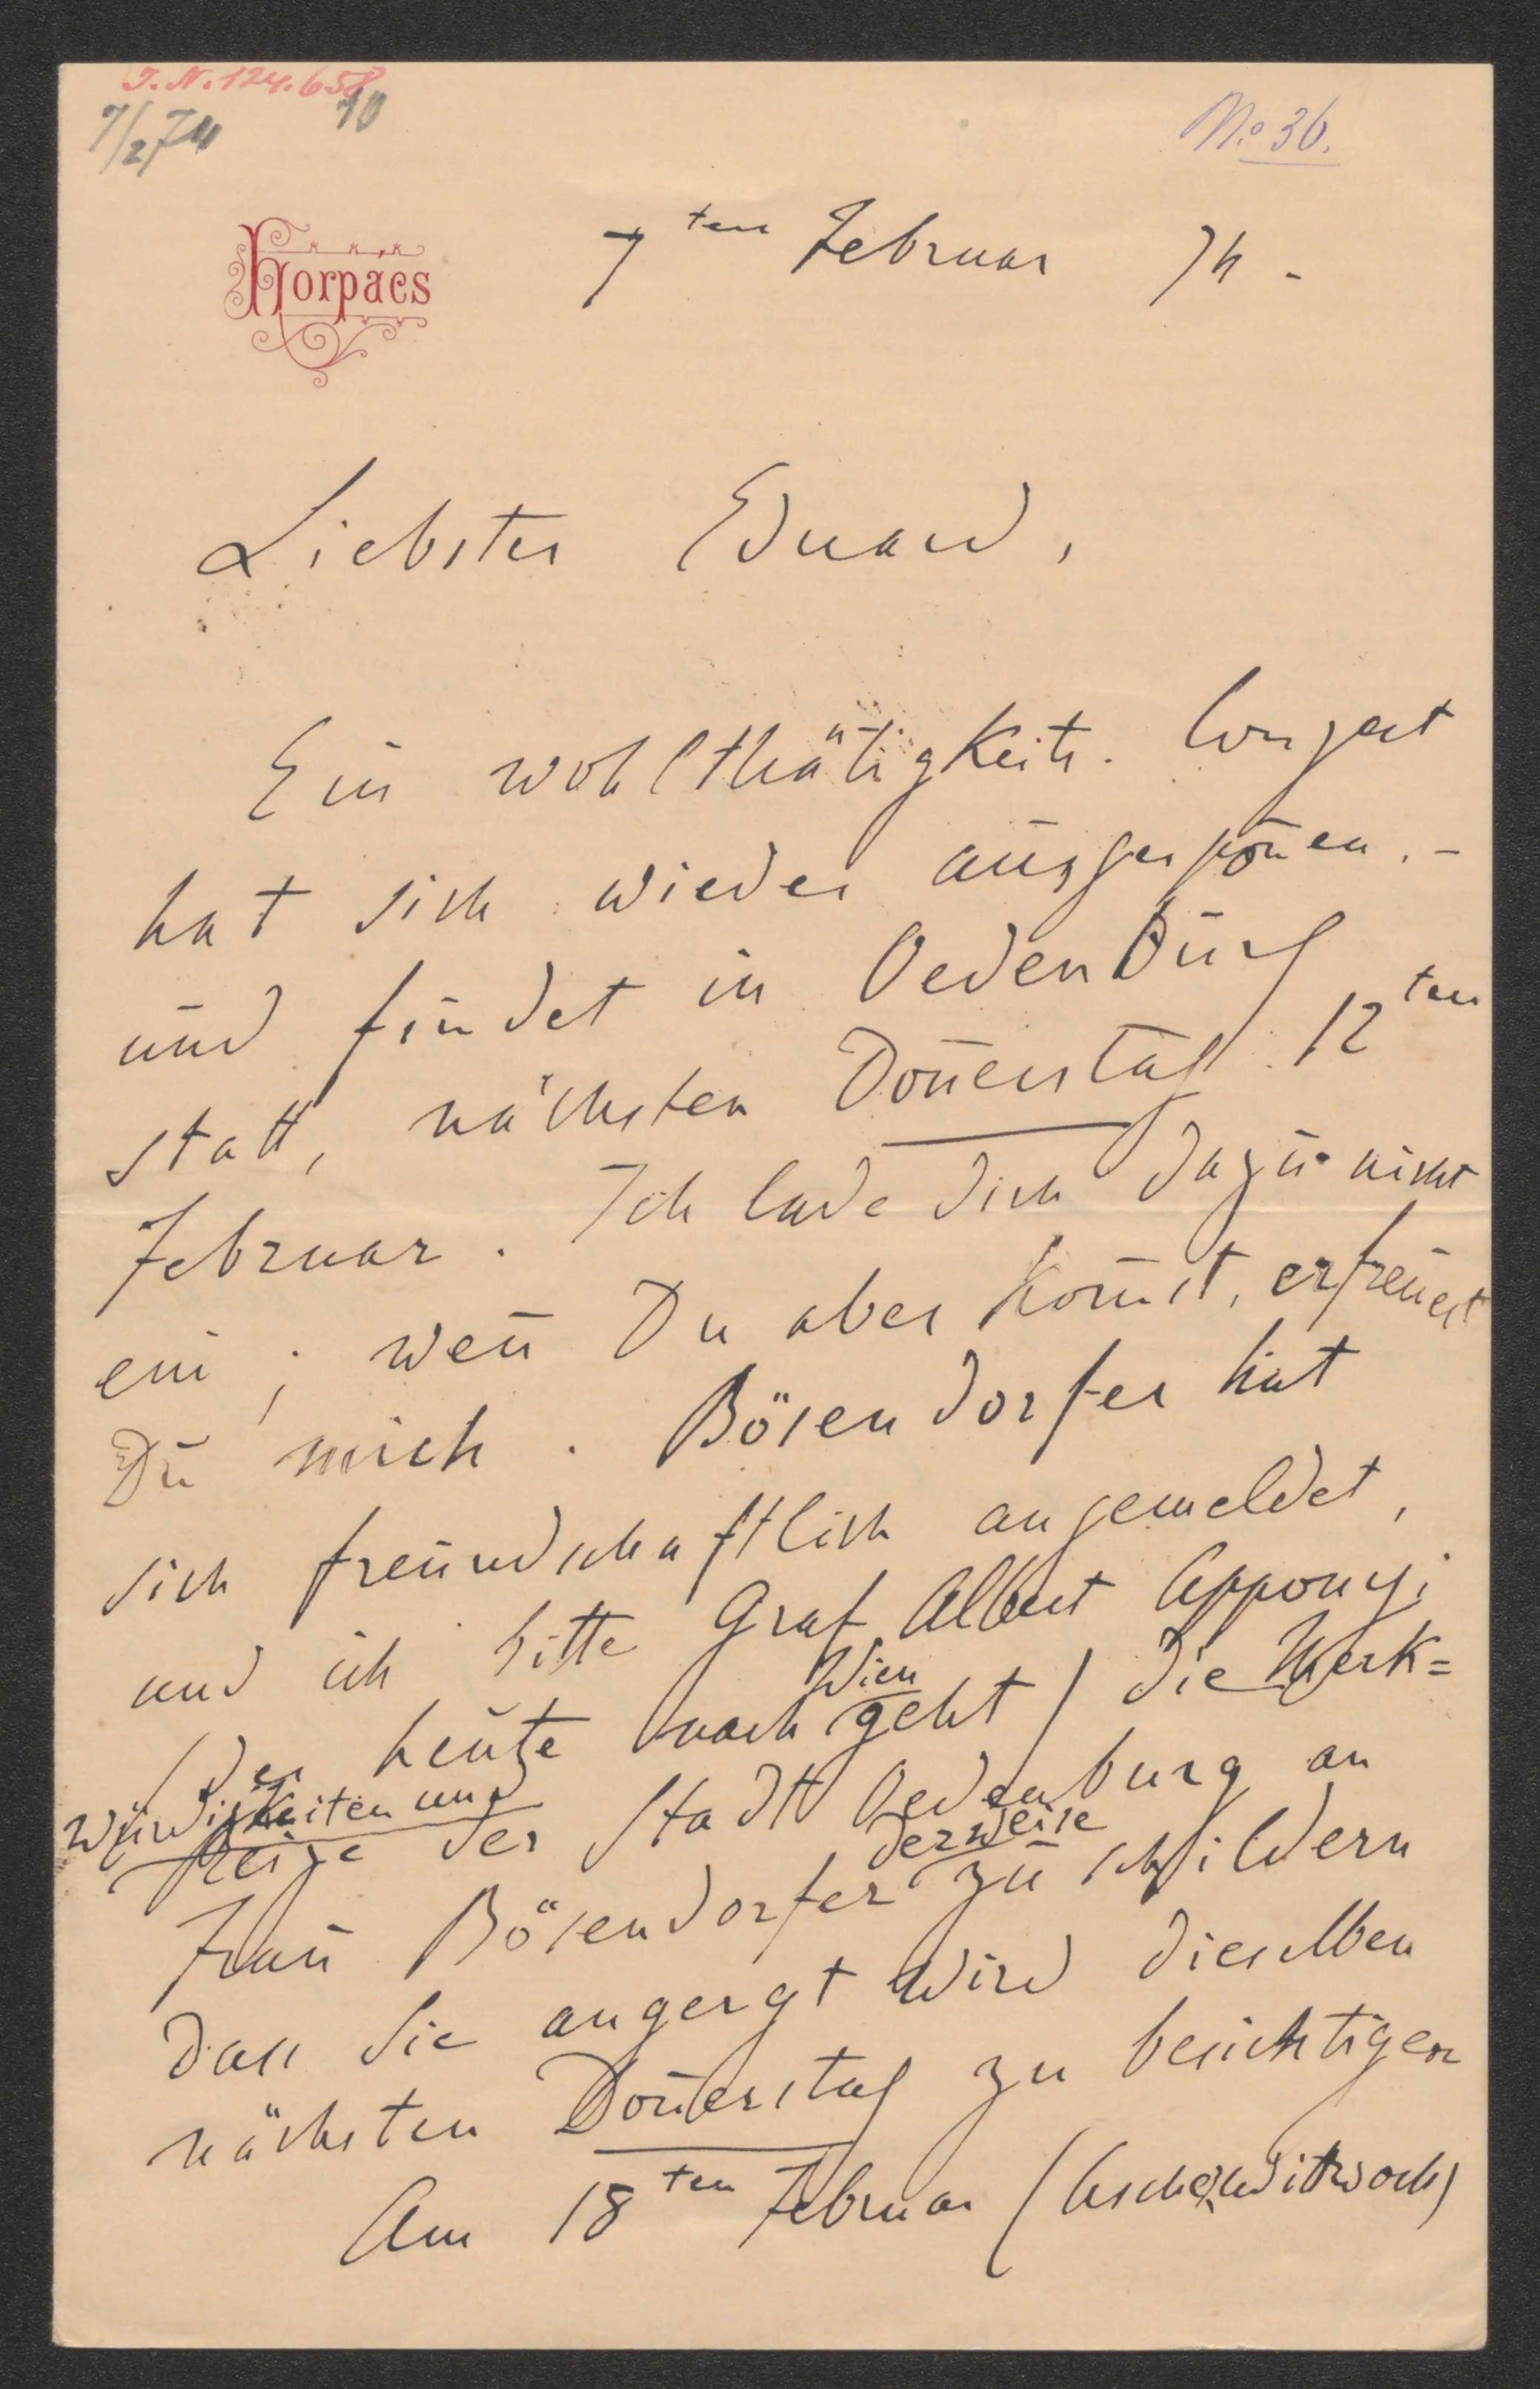 I. N. 124.658
7/2 74 10
No 36.
Horpács
7ten Februar 74 -
Liebster Eduard,
Ein wohlthätigkeits. Conzert
hat sich wieder ausgesponen. -
und findet in Oedenburg
statt, nächsten Donerstag 12ten
Februar. Ich lade dich dazu nicht
ein; wen Du aber komst, erfreuest
Du mich. Bösendorfer hat
sich freundschaftlich angemeldet,
und ich bitte Graf Albert Apponyi
(der heute nach Wien geht) die Merk=
würdigkeiten und Reize der Stadt Oedenburg an
Frau Bösendorfer derweise zu schildern
dass Sie angergt wird dieselben
nächsten Donerstag zu besichtigen
Am 18ten Februar (Aschermittwoch)